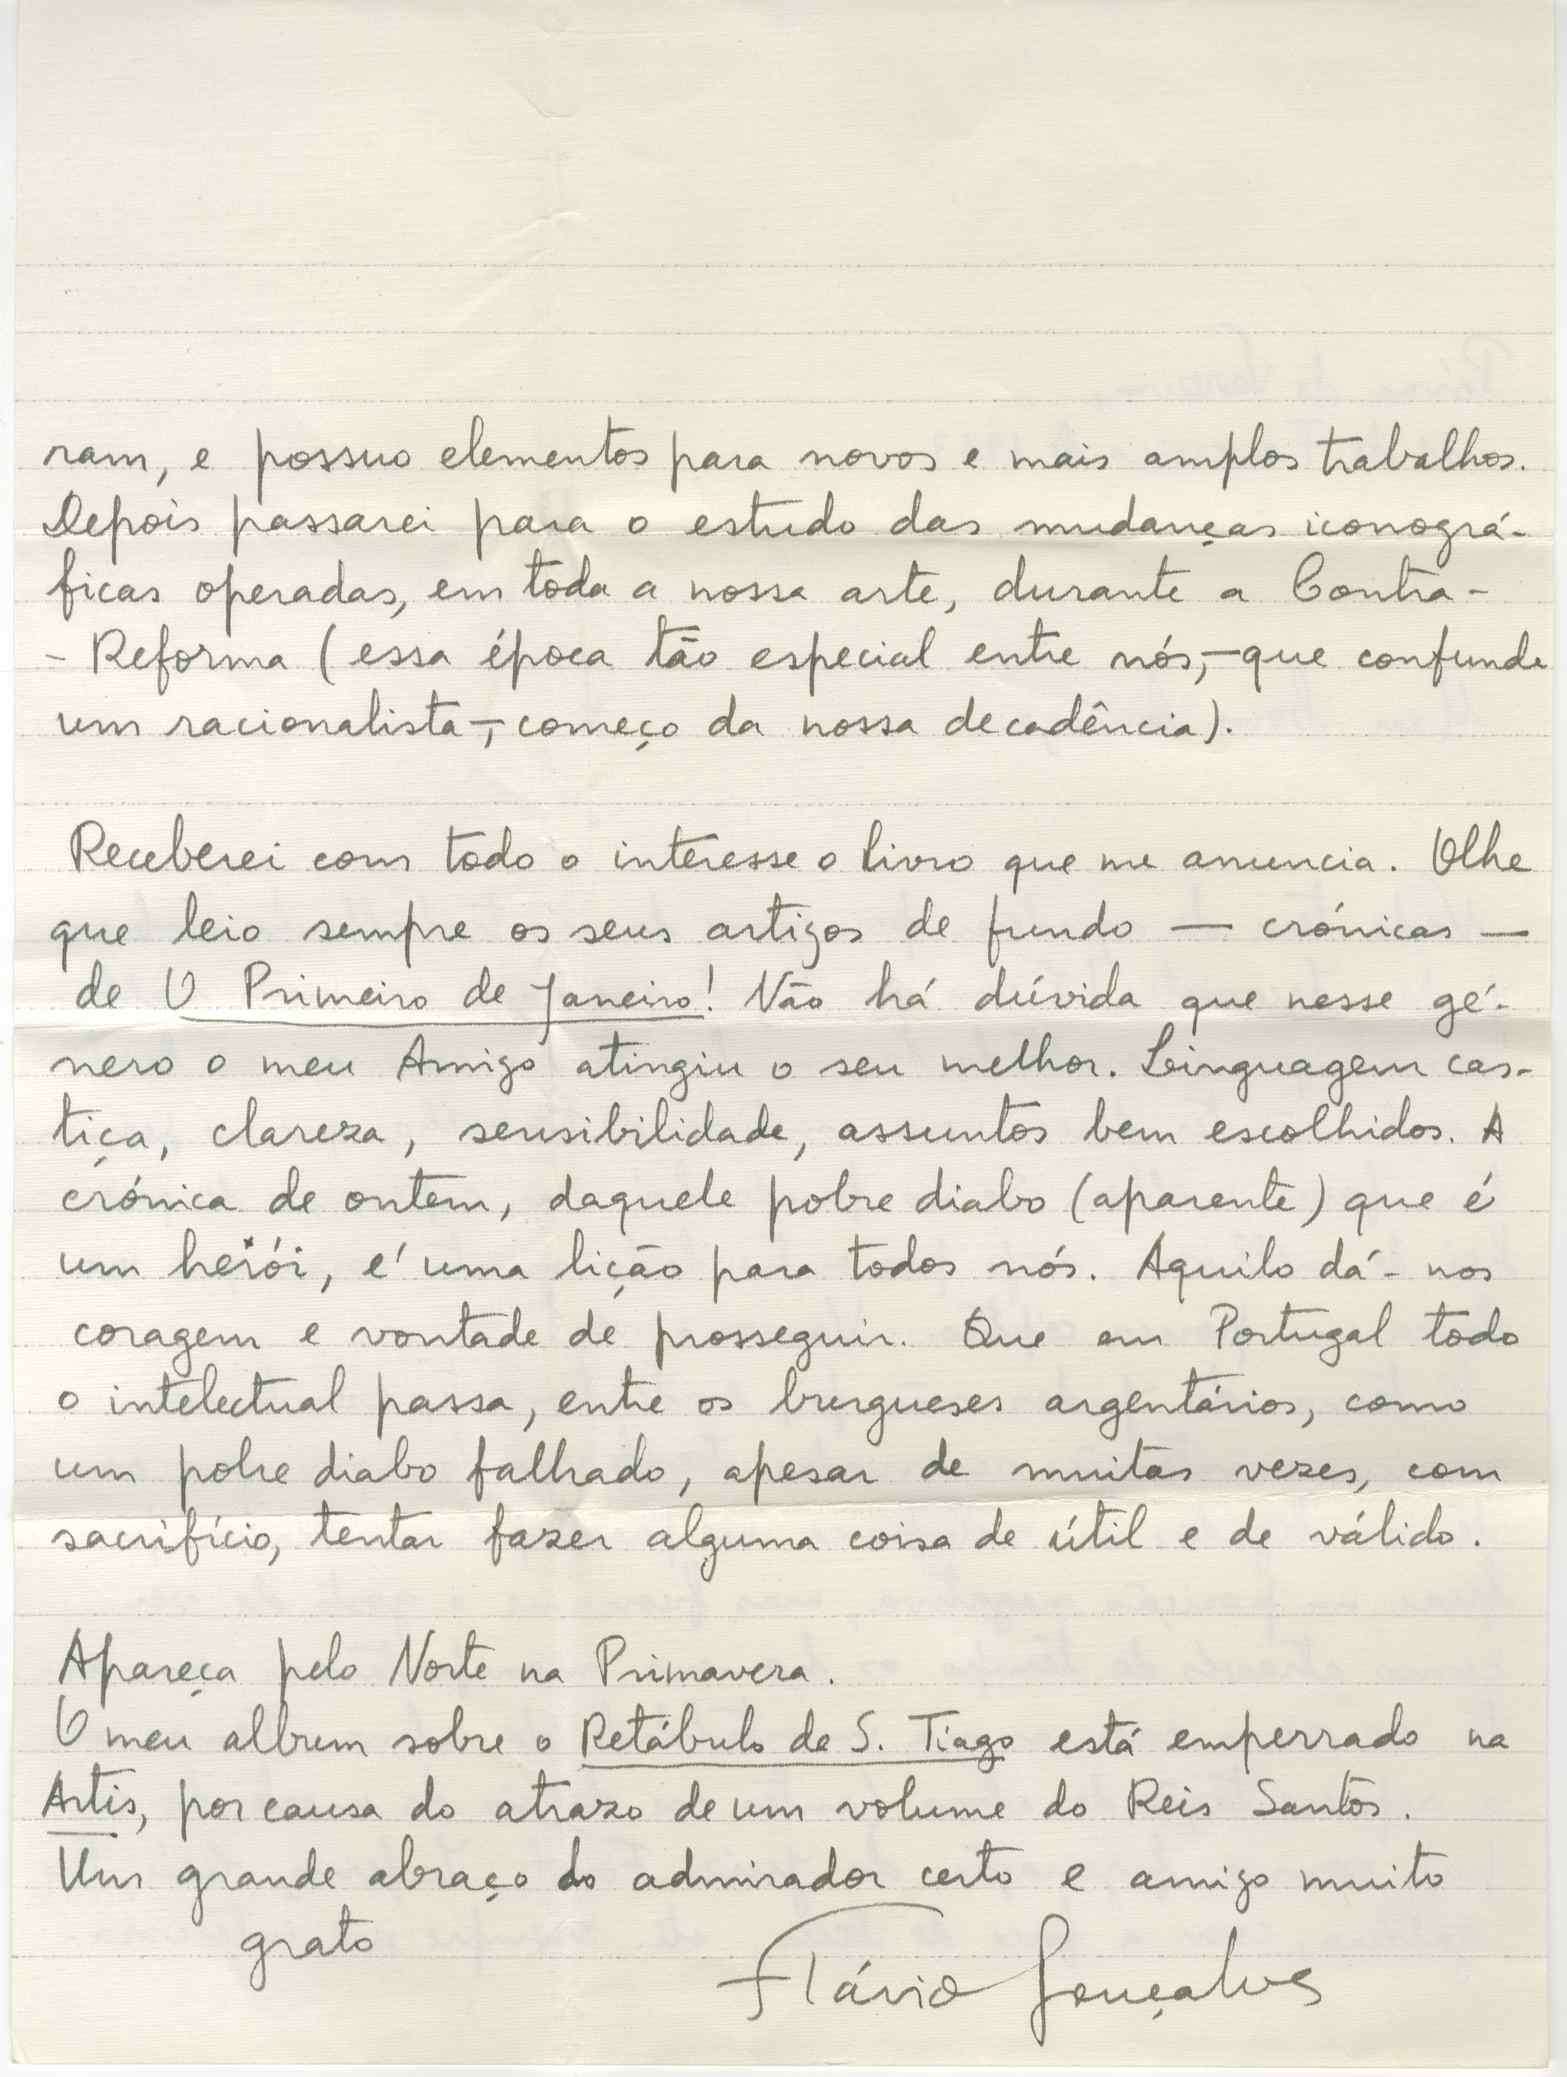 ram, e possuo elementos para novos e mais amplos trabalhos.
Depois passarei para o estudo das mudanças iconográ-
ficas operadas, em toda a nossa arte, durante a Contra-
- Reforma (essa época tão especial entre nós,—que confunde
um racionalista—, começo da nossa decadência).
Receberei com todo o interesse o livro que me anuncia. Olhe
que leio sempre os seus artigos de fundo — crónicas —
de O Primeiro de Janeiro! Não há dúvida que nesse gé-
nero o meu Amigo atingiu o seu melhor. Linguagem cas-
tiça, clareza, sensibilidade, assuntos bem escolhidos. A
crónica de ontem, daquele pobre diabo (aparente) que é
um herói, é uma lição para todos nós. Aquilo dá-nos
coragem e vontade de prosseguir. Que em Portugal todo
o intelectual passa, entre os burgueses argentários, como
um pobre diabo falhado, apesar de muitas vezes, com
sacrifício, tentar fazer alguma coisa de útil e de válido.
Apareça pelo Norte na Primavera.
O meu album sobre o Retábulo de S. Tiago está emperrado na
Artis, por causa do atrazo de um volume do Reis Santos.
Um grande abraço do admirador certo e amigo muito
grato
Flávio Gonçalves